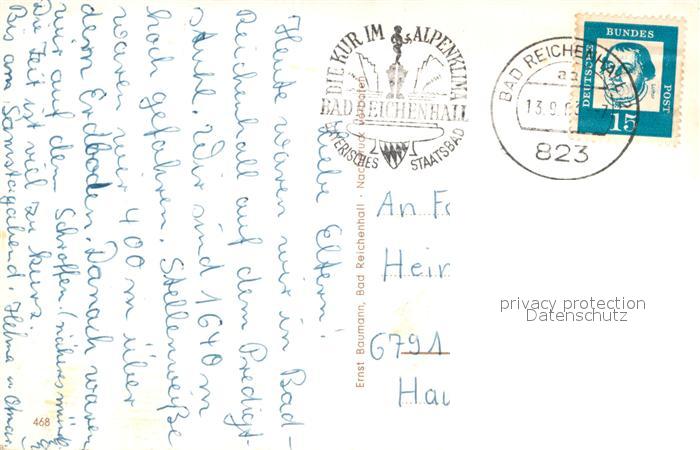 Liebe Eltern!
Heute waren wir in Bad-
Reichenhall auf dem Predigt-
stuhl. Wir sind 1640 m
hoch gefahren. Stellenweiße
waren wir 400 m über
dem Erdboden. Danach waren
wir auf den Schroffen. (näheres mündl.
Die Zeit ist viel zu kurz.
Bis am Samstagabend. Helma u Otmar
468
Ernst Baumann, Bad Reichenhall · Nachdruck verboten
DIE KUR IM ALPENKLIMA
BAD REICHENHALL
BAYERISCHES STAATSBAD
BAD REICHENHALL
aa
13.9.6
823
DEUTSCHE BUNDES POST
Luther
15
An F
Hein
6791
Hau
privacy protection
Datenschutz